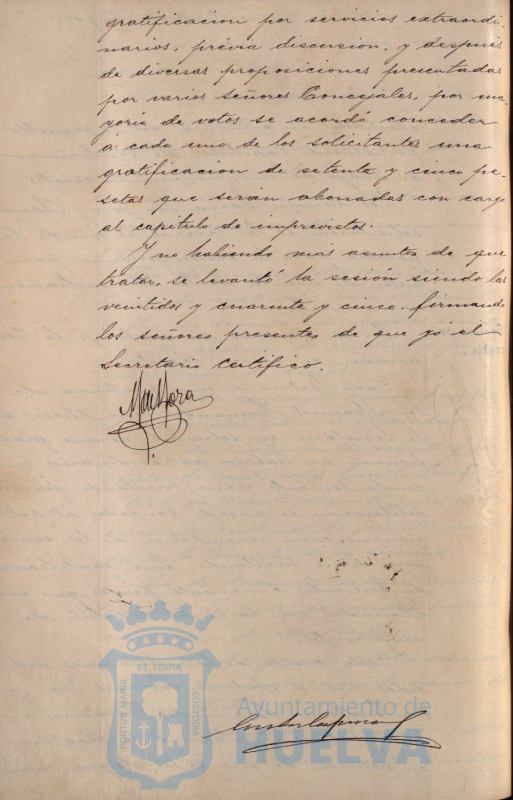 gratificacion por servicios extraordi-
narios, prévia discusion, y después
de diversas proposiciones presentadas
por varios señores Concejales, por ma-
yoria de votos se acordó conceder
á cada uno de los solicitantes una
gratificacion de setenta y cinco pe-
setas que serán abonadas con cargo
al capitulo de imprevistos.
Y no habiendo más asuntos de que
tratar, se levantó la sesión siendo las
veintidos y cuarenta y cinco. firmando
los señores presentes de que yó el
Secretario certifico.
PORTUS MARIS ET TERRÆ CUSTODIA
Ayuntamiento de
HUELVA